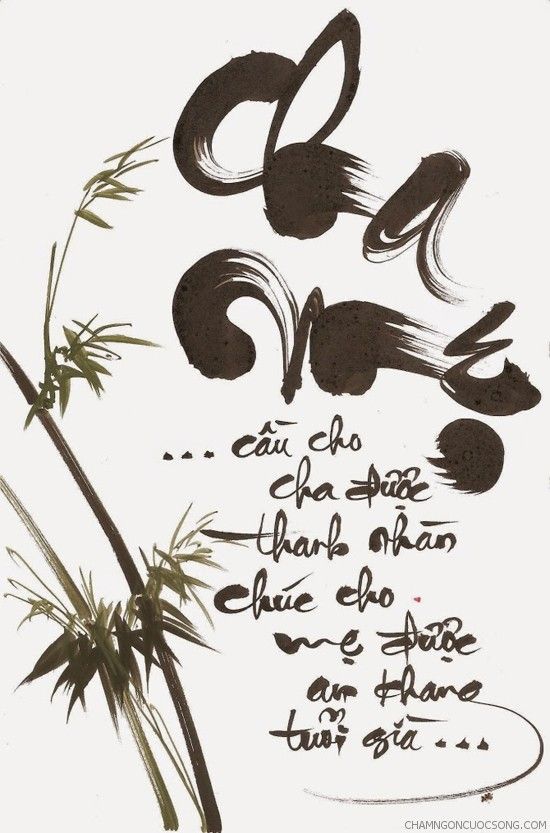 Cha
Mẹ
... cầu cho
cha được
thanh nhàn
chúc cho
mẹ được
an khang
tuổi già ...
CHAMNGONCUOCSONG.COM